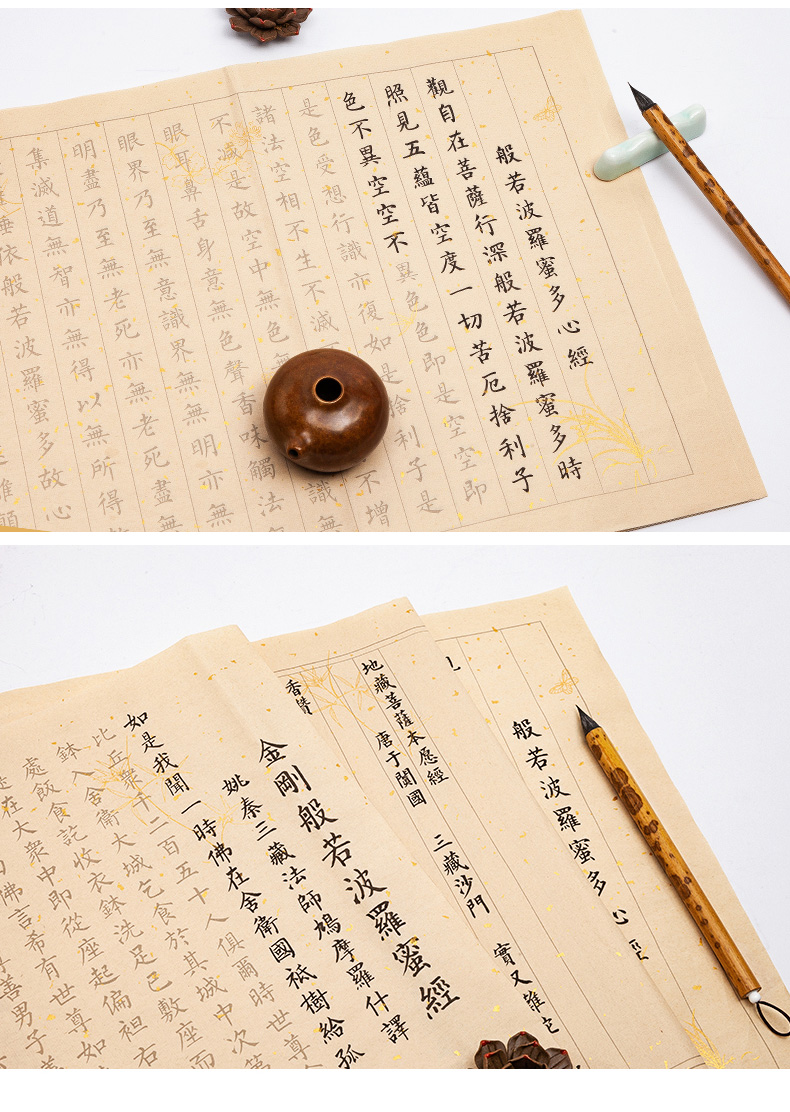 般若波羅蜜多心經
觀自在菩薩行深般若波羅蜜多時
照見五蘊皆空度一切苦厄捨利子
色不異空空不異色色即是空空即
是色受想行識亦復如是捨利子是
諸法空相不生不滅 不增
不減是故空中無色 識無
眼耳鼻舌身意無色聲香味觸法無
眼界乃至無意識界無無明亦無
明盡乃至無老死亦無老死盡無
集滅道無智亦無得以無所得
埵依般若波羅蜜多故心
般若波羅蜜多心
地藏菩薩本愿經
唐于闐國 三藏沙門 實又難
香讚
金剛般若波羅蜜經
姚秦三藏法師鳩摩羅什譯
如是我聞一時佛在舍衛國祇樹給孤
比丘眾千二百五十人俱爾時世尊
鉢入舍衛大城乞食於其城中次第
處飯食訖收衣鉢洗足已敷座而
在大眾中即從座起偏袒右
佛言希有世尊如
善男子善